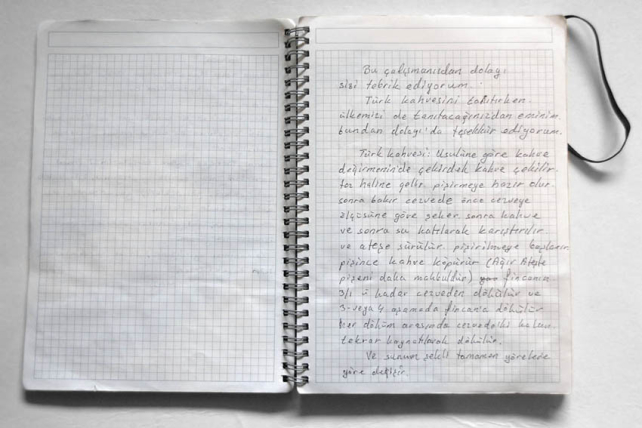 Bu çalışmanızdan dolayı
sizi tebrik ediyorum.
Türk kahvesini tanıtırken
ülkemizi de tanıtacağınızdan eminim
bundan dolayı da teşekkür ediyorum.
Türk kahvesi: Usulüne göre kahve
değirmeninde çekirdek kahve çekilir
toz haline gelir. pişirmeye hazır olur.
sonra bakır cezvede önce cezveye
ölçüsüne göre şeker sonra kahve
ve sonra su katılarak karıştırılır
ve ateşe sürülür. pişirilmeye başlanır
pişince kahve köpürür (Ağır Ateşte
pişeni daha makbuldür) fincanın
3/1 ü kadar cezveden dökülür ve
3-veya 4 aşamada fincana dökülür
her döküm arasında cezvedeki
tekrar kaynatılarak dökülür.
Ve sunum şekli tamamen yörelere
göre değişir.